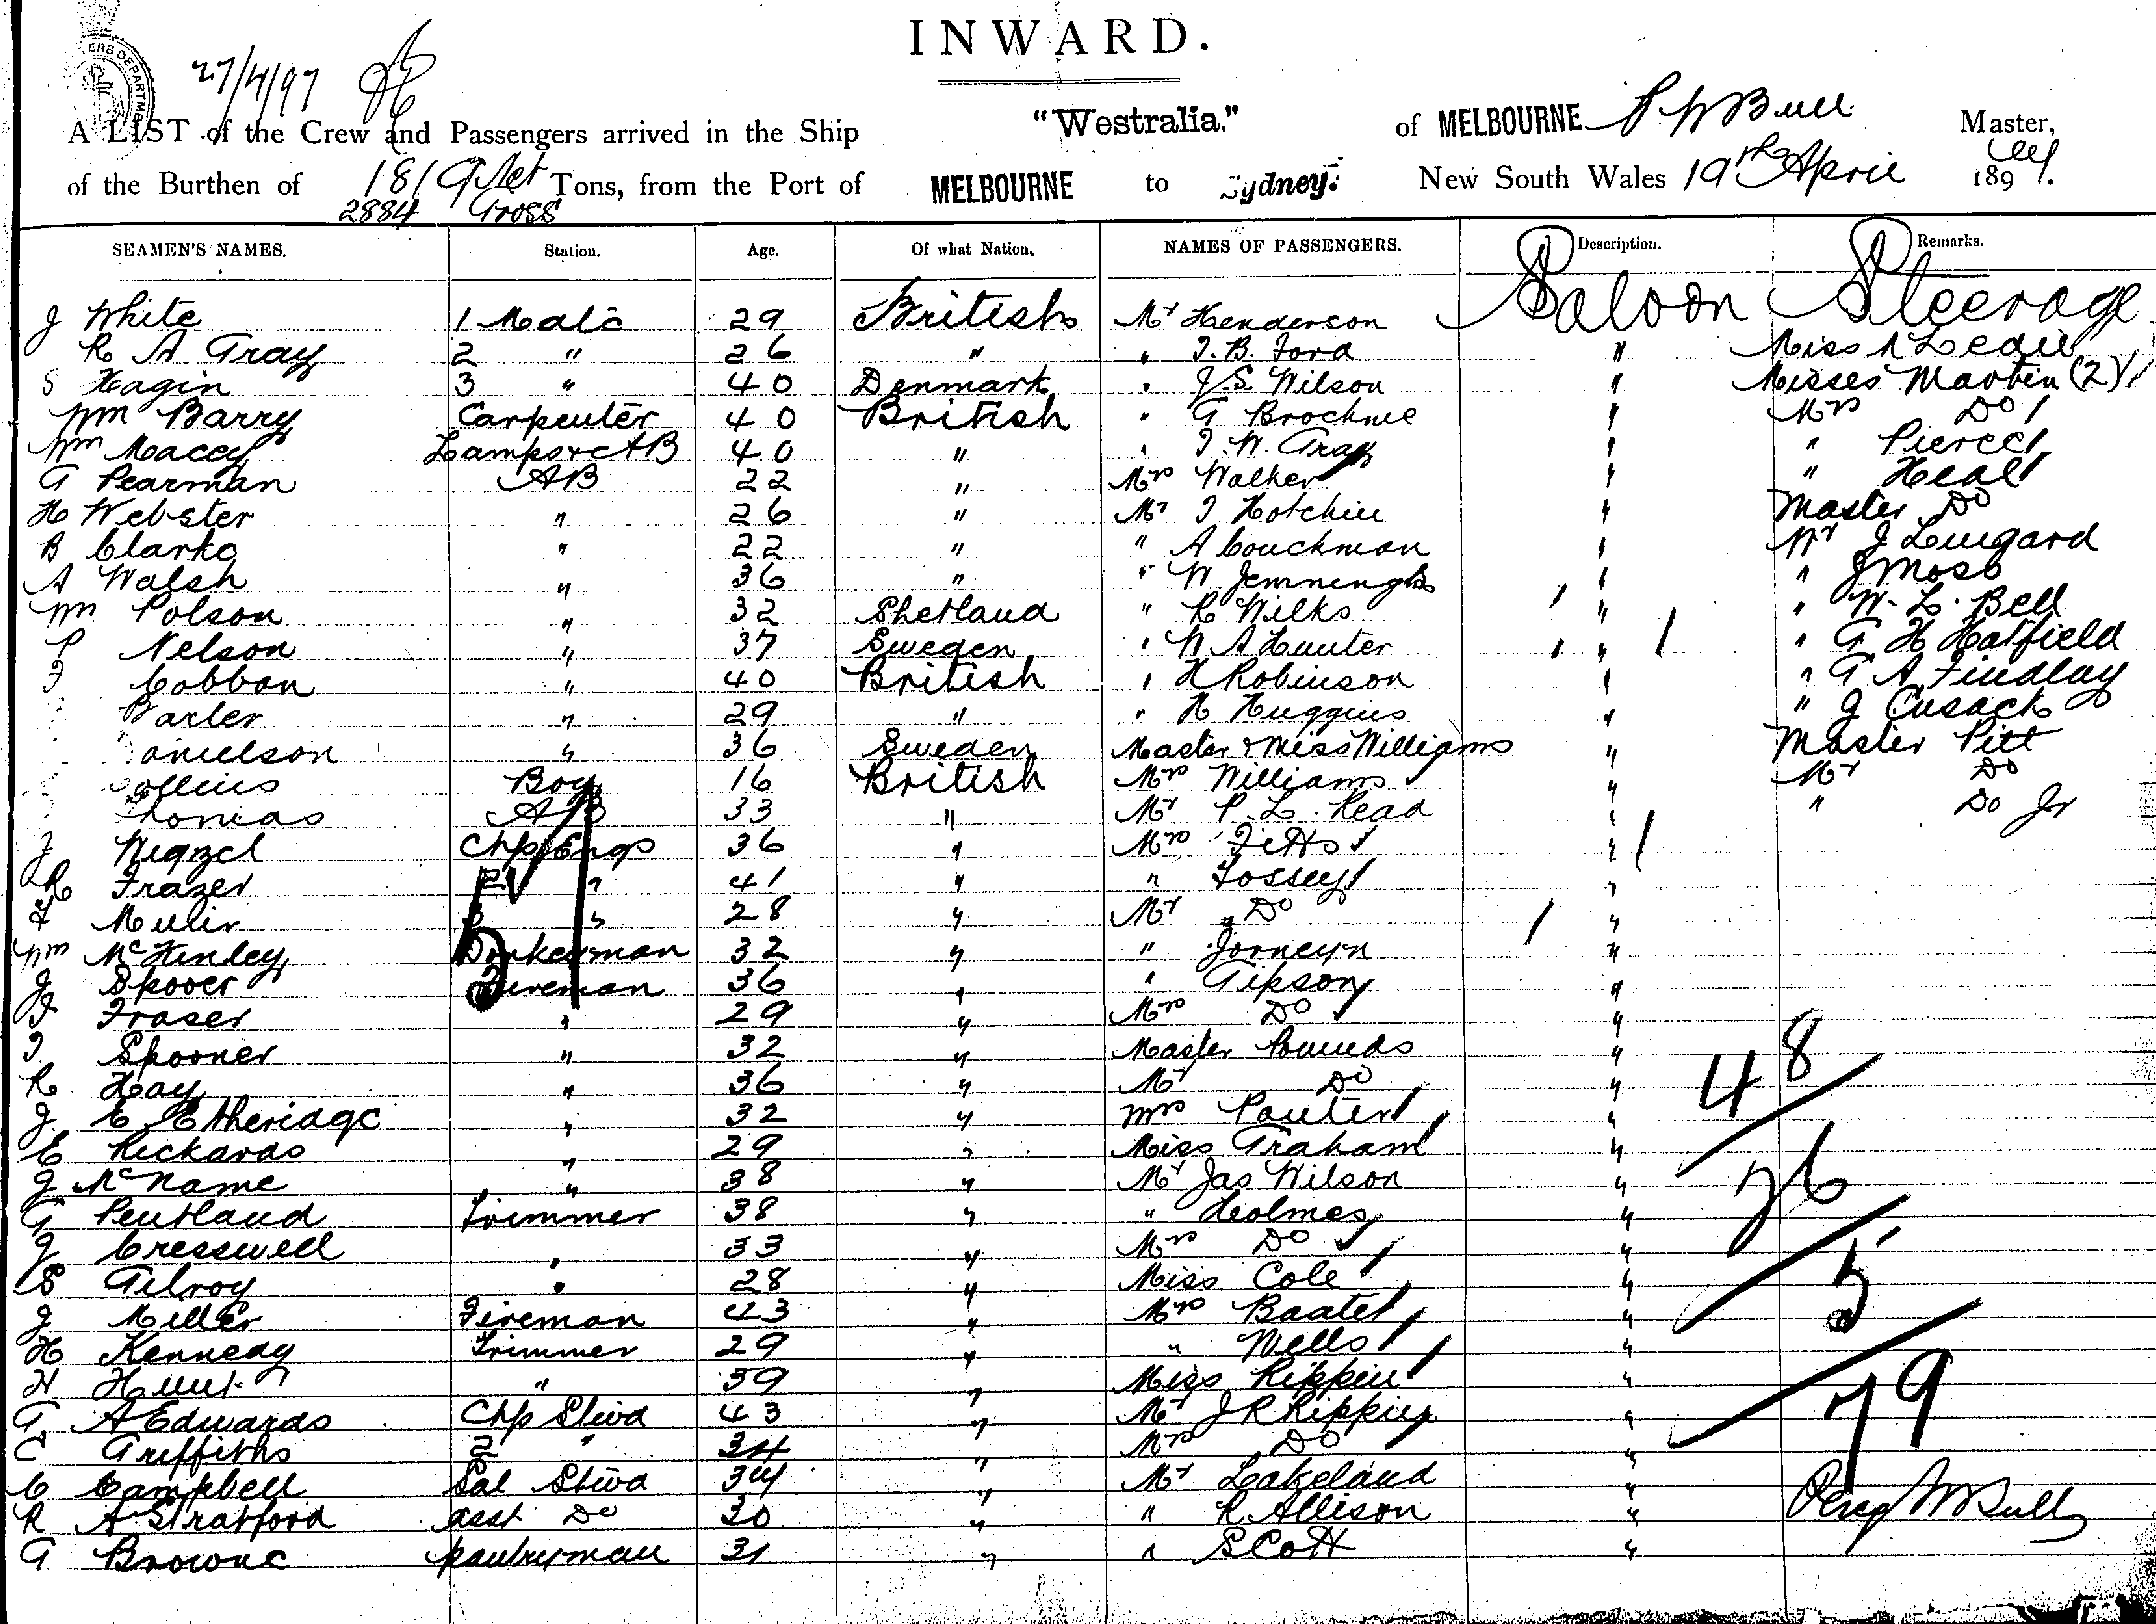 INWARD.
27/4/97
A LIST of the Crew and Passengers arrived in the Ship "Westralia," of MELBOURNE P W Bull Master,
of the Burthen of 1819 Net Tons, from the Port of MELBOURNE to Sydney. New South Wales 19th April 1897.
2884 Gross
SEAMEN'S NAMES. Station. Age. Of what Nation. NAMES OF PASSENGERS. Description. Remarks.
J White 1 Mate 29 British Mr Henderson Saloon Steerage
R A Gray 2 " 26 " " T. B. Ford " Miss
S Hagin 3 " 40 Denmark " J. S. Wilson " Misses Martin (2)
Wm Barry Carpenter 40 British " G " Mrs Do
Wm Macey Lamps &c AB 40 " " T. W. Gray " " Pierce
G Pearman AB 22 " Mrs Walker " " Heal
H Webster " 26 " Mr T Hotchin " Master Do
B Clarke " 22 " " A Couchman " Mr J Lingard
A Walsh " 36 " " W Jemnengks " " J Moss
Wm Polson " 32 Shetland " R Wilks " " W. L. Bell
P Nelson " 37 Sweden " W A Hunter " " G H Hatfield
F Cobbon " 40 British " H Robinson " " G A Findlay
29 " " H Huggins " " J Cusack
anielson " 36 Sweden Master & Miss Williams " Master Pitt
ollins Boy 16 British Mrs Williams " Mr Do
Thomas AB 33 " Mr P. L. Read " " Do Jr
J Chf Engr 36 " Mrs "
R Frazer 2 " 41 " " Fossey "
Muir 3 " 28 " Mr Do "
Wm McHenley Donkeyman 32 " " "
J Spooer Fireman 36 " " Gipson "
J Fraser " 29 " Mrs Do "
T Spooner " 32 " Master Pounds "
R Hay " 36 " Mr Do " 48
J E Etheridge " 32 " Mrs Pouter "
C Rickards " 29 " Miss Graham "
J McName " 38 " Mr Jas Wilson " 26
G Pentland Trimmer 38 " " Holmes "
J Cresswell " 33 " Mrs Do "
S Gilroy " 28 " Miss Cole " 5
J Miller Fireman 43 " Mrs "
H Kennedy Trimmer 29 " " Wells "
H Hunt " 39 " Miss Rippin "
G A Edwards Chf Stwd 43 " Mr J R Rippin " 79
C Griffiths 2 " 34 " Mrs Do "
C Campbell Sal Stwd 34 " Mr Lakeland "
R A Stratford asst Do 30 " " R Allison "
G Browne pantryman 31 " " Scott "